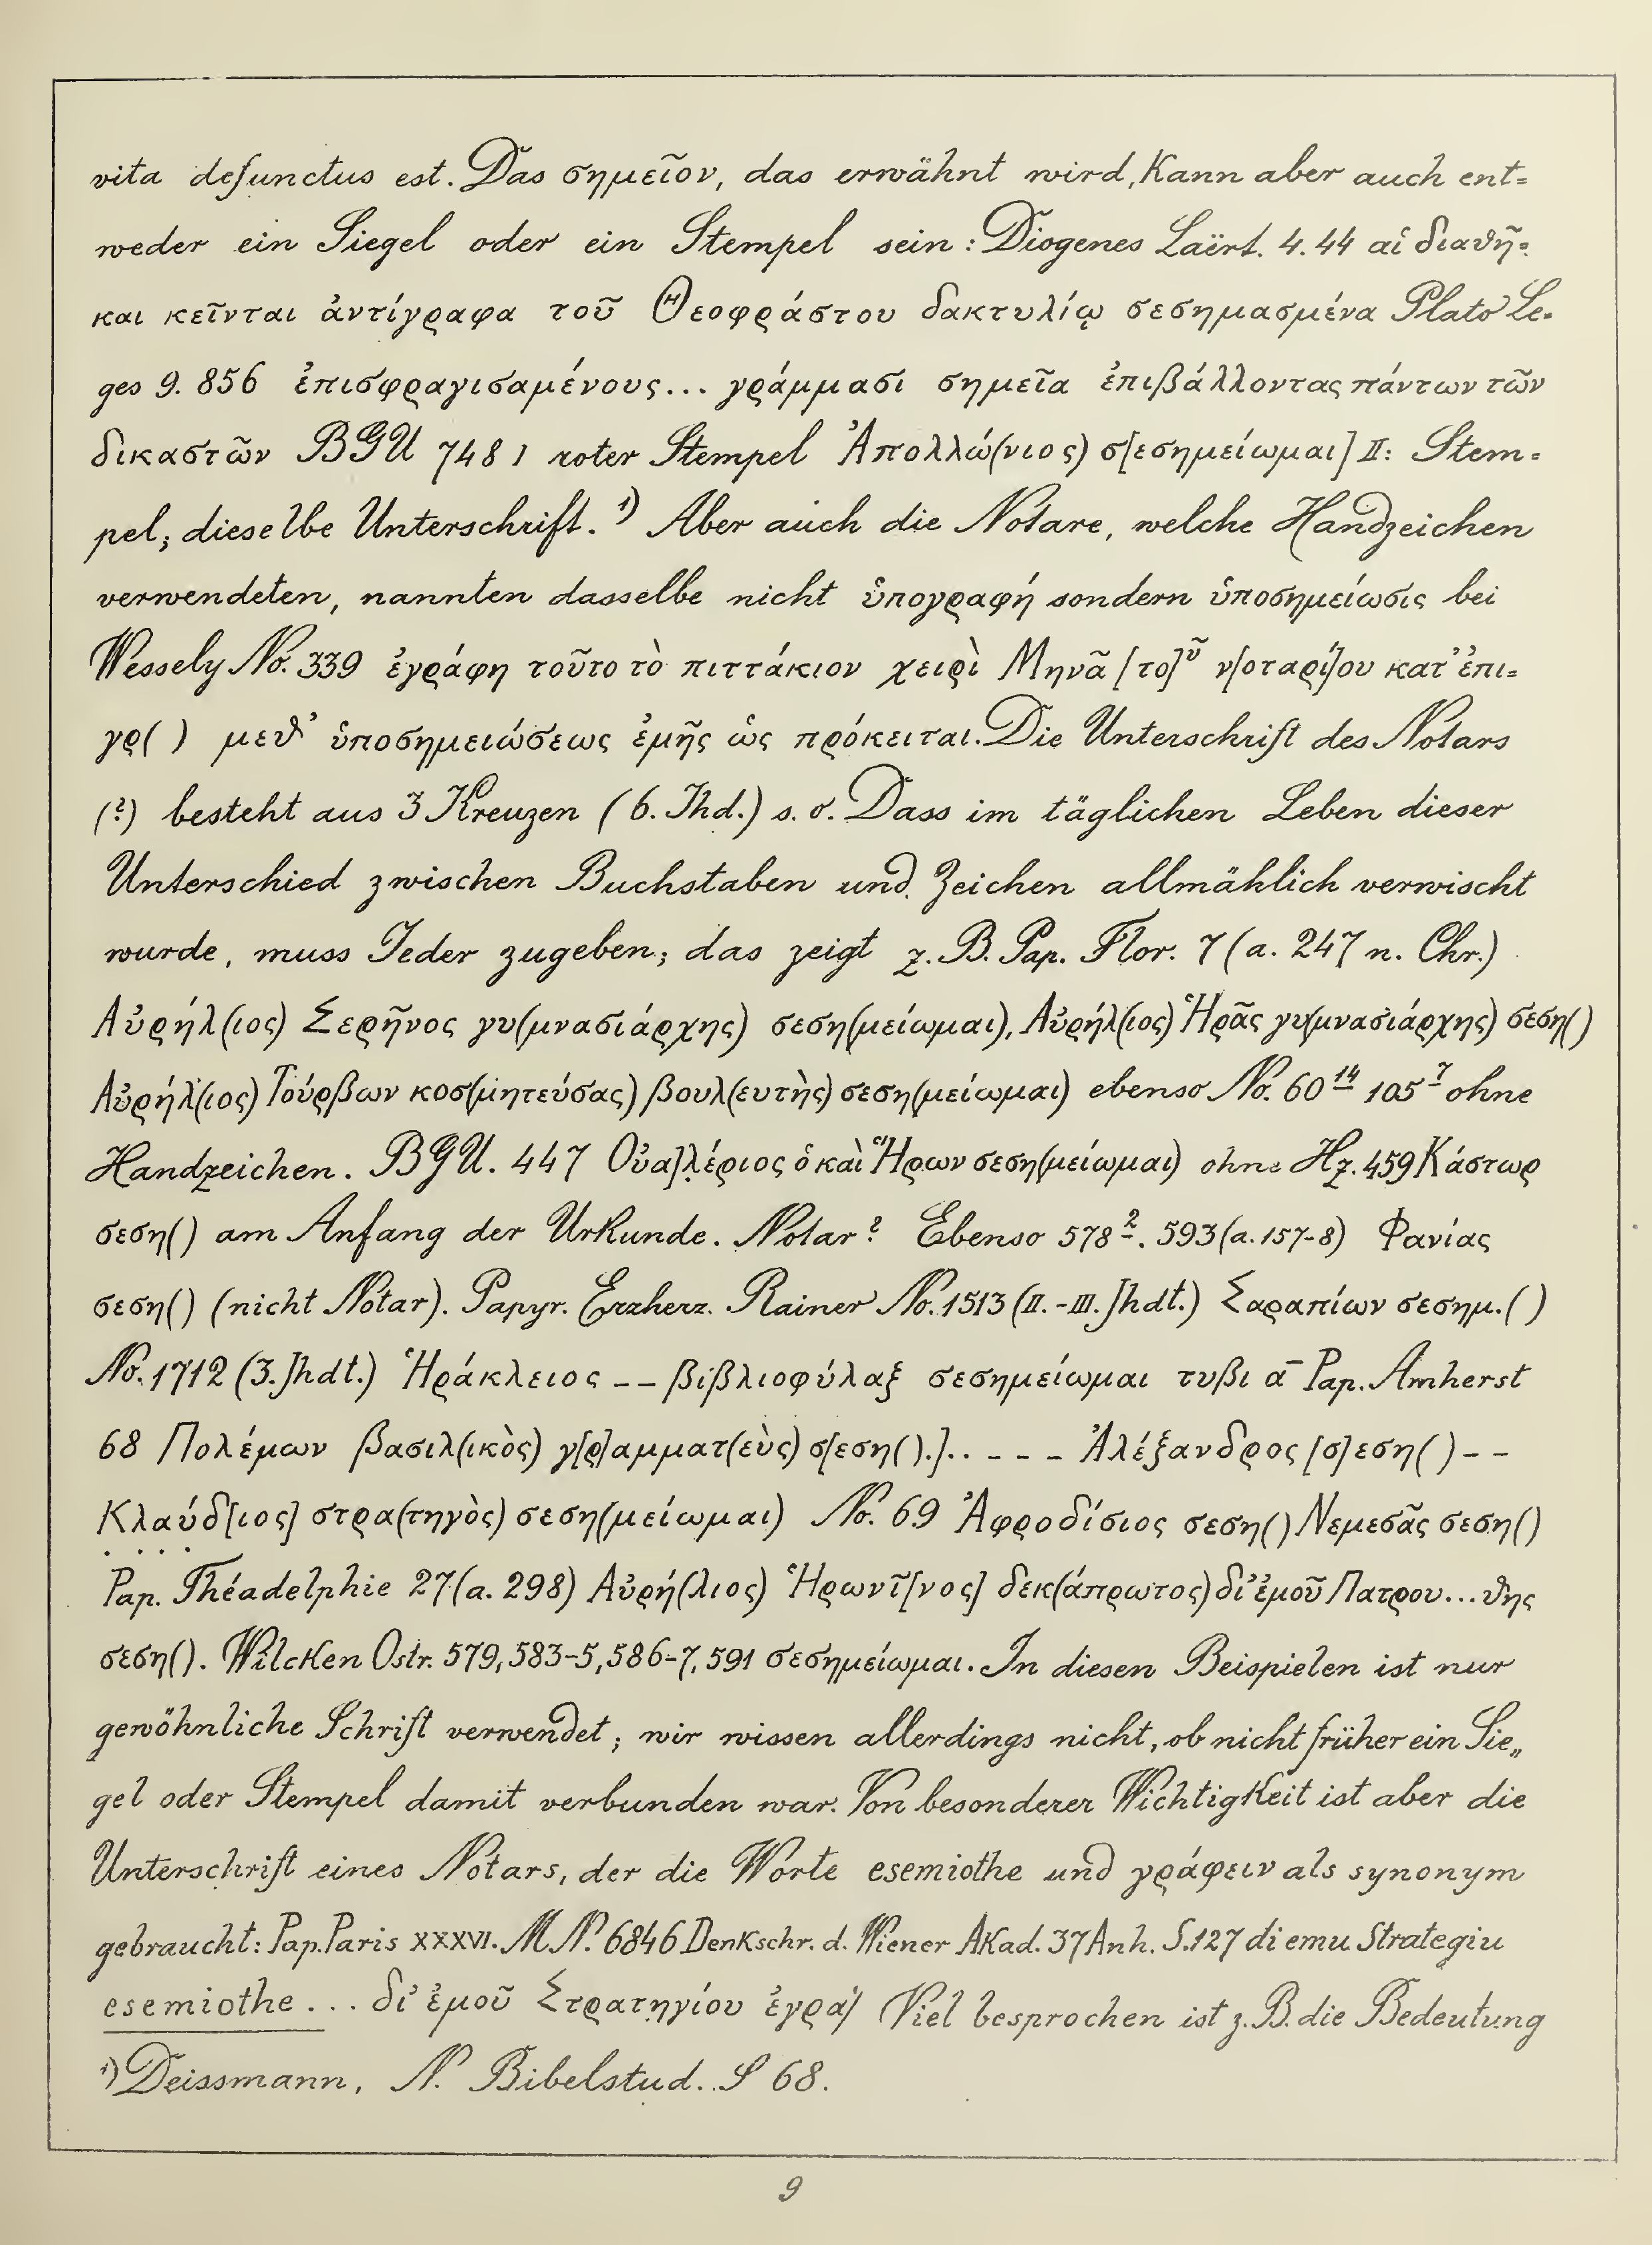 vita defunctus est. Das σημεῖον, das erwähnt wird, kann aber auch ent=
weder ein Siegel oder ein Stempel sein: Diogenes Laërt. 4. 44 αἱ διαθῆ=
και κεῖνται ἀντίγραφα τοῦ Θεοφράστου δακτυλίῳ σεσημασμένα Plato Le=
ges 9. 856 ἐπισφραγισαμένους... γράμμασι σημεῖα ἐπιβάλλοντας πάντων τῶν
δικαστῶν BGU 748 I roter Stempel Ἀπολλώ(νιος) σ[εσημείωμαι] II: Stem=
pel; dieselbe Unterschrift.¹) Aber auch die Notare, welche Handzeichen
verwendeten, nannten dasselbe nicht ὑπογραφή sondern ὑποσημείωσις bei
Wessely No. 339 ἐγράφη τοῦτο τὸ πιττάκιον χειρὶ Μηνᾶ [το]ῦ ν[οταρί]ου κατ' ἐπι=
γρ( ) μεθ' ὑποσημειώσεως ἐμῆς ὡς πρόκειται. Die Unterschrift des Notars
(?) besteht aus 3 Kreuzen (6. Jhd.) s. o. Dass im täglichen Leben dieser
Unterschied zwischen Buchstaben und Zeichen allmählich verwischt
wurde, muss Jeder zugeben; das zeigt z. B. Pap. Flor. 7 (a. 247 n. Chr.)
Αὐρήλ(ιος) Σερῆνος γυ(μνασιάρχης) σεση(μείωμαι), Αὐρήλ(ιος) Ἡρᾶς γυ(μνασιάρχης) σεση()
Αὐρήλ(ιος) Τούρβων κοσ(μητεύσας) βουλ(ευτὴς) σεση(μείωμαι) ebenso No. 60 14 105 7 ohne
Handzeichen. BGU. 447 Οὐα]λέριος ὁ καὶ Ἥρων σεση(μείωμαι) ohne Hz. 459 Κάστωρ
σεση() am Anfang der Urkunde. Notar? Ebenso 578 2. 593 (a. 157-8) Φανίας
σεση() (nicht Notar). Papyr. Erzherz. Rainer No. 1513 (II.-III. Jhdt.) Σαραπίων σεσημ.( )
No. 1712 (3. Jhdt.) Ἡράκλειος -- βιβλιοφύλαξ σεσημείωμαι τυβι ᾱ Pap. Amherst
68 Πολέμων βασιλ(ικὸς) γ[ρ]αμματ(εὺς) σ[εση().].. - - - Ἀλέξανδρος [σ]εση() - -
Κλαύδ[ιος] στρα(τηγὸς) σεση(μείωμαι) No. 69 Ἀφροδίσιος σεση() Νεμεσᾶς σεση()
Pap. Théadelphie 27 (a. 298) Αὐρή(λιος) Ἡρωνῖ[νος] δεκ(άπρωτος) δι' ἐμοῦ Πατρου...θης
σεση(). Wilcken Ostr. 579, 583-5, 586-7, 591 σεσημείωμαι. In diesen Beispielen ist nur
gewöhnliche Schrift verwendet; wir wissen allerdings nicht, ob nicht früher ein Sie„
gel oder Stempel damit verbunden war. Von besonderer Wichtigkeit ist aber die
Unterschrift eines Notars, der die Worte esemiothe und γράφειν als synonym
gebraucht: Pap. Paris XXXVI. M N. 6846 Denkschr. d. Wiener Akad. 37 Anh. S. 127 di emu Strategiu
esemiothe ... δι' ἐμοῦ Στρατηγίου ἐγρα/ Viel besprochen ist z. B. die Bedeutung
¹) Deissmann, N. Bibelstud. S 68.
9